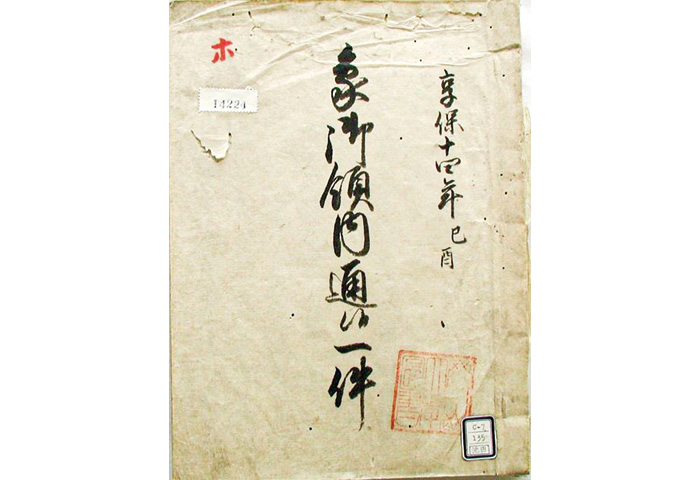 享保十四年己酉
象御領内通候一件
ホ
14224
C-7
135